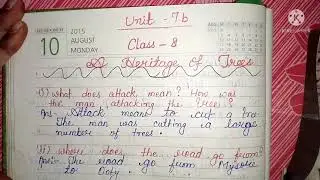 Unit - 7b
10
2015
AUGUST
MONDAY
Class - 8
Heritage of Trees
(i) what does attack mean? How was
the man attacking the trees?
Ans- Attack means to cut a tree
The man was cutting a large
number of trees.
(ii) where does the road go from?
Ans- The road go from Mysore
to Ooty.